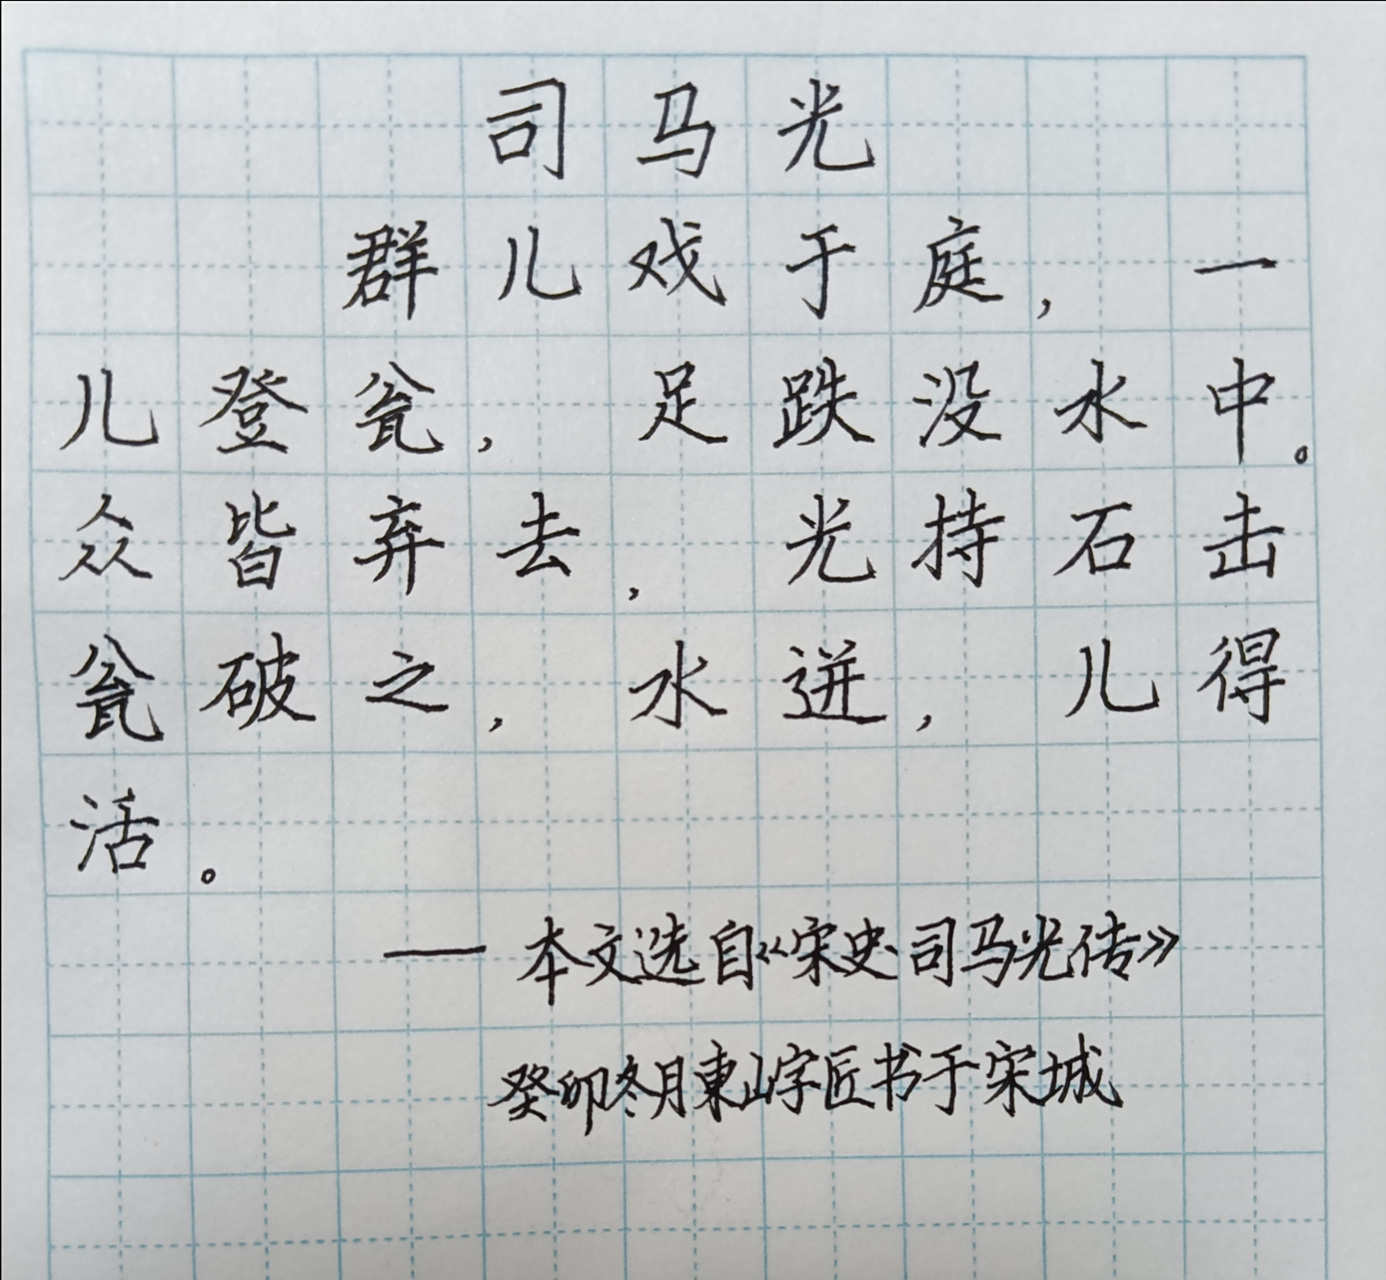 司马光
群儿戏于庭，一
儿登瓮，足跌没水中。
众皆弃去，光持石击
瓮破之，水迸，儿得
活。
—本文选自《宋史·司马光传》
癸卯冬月東山字匠书于宋城